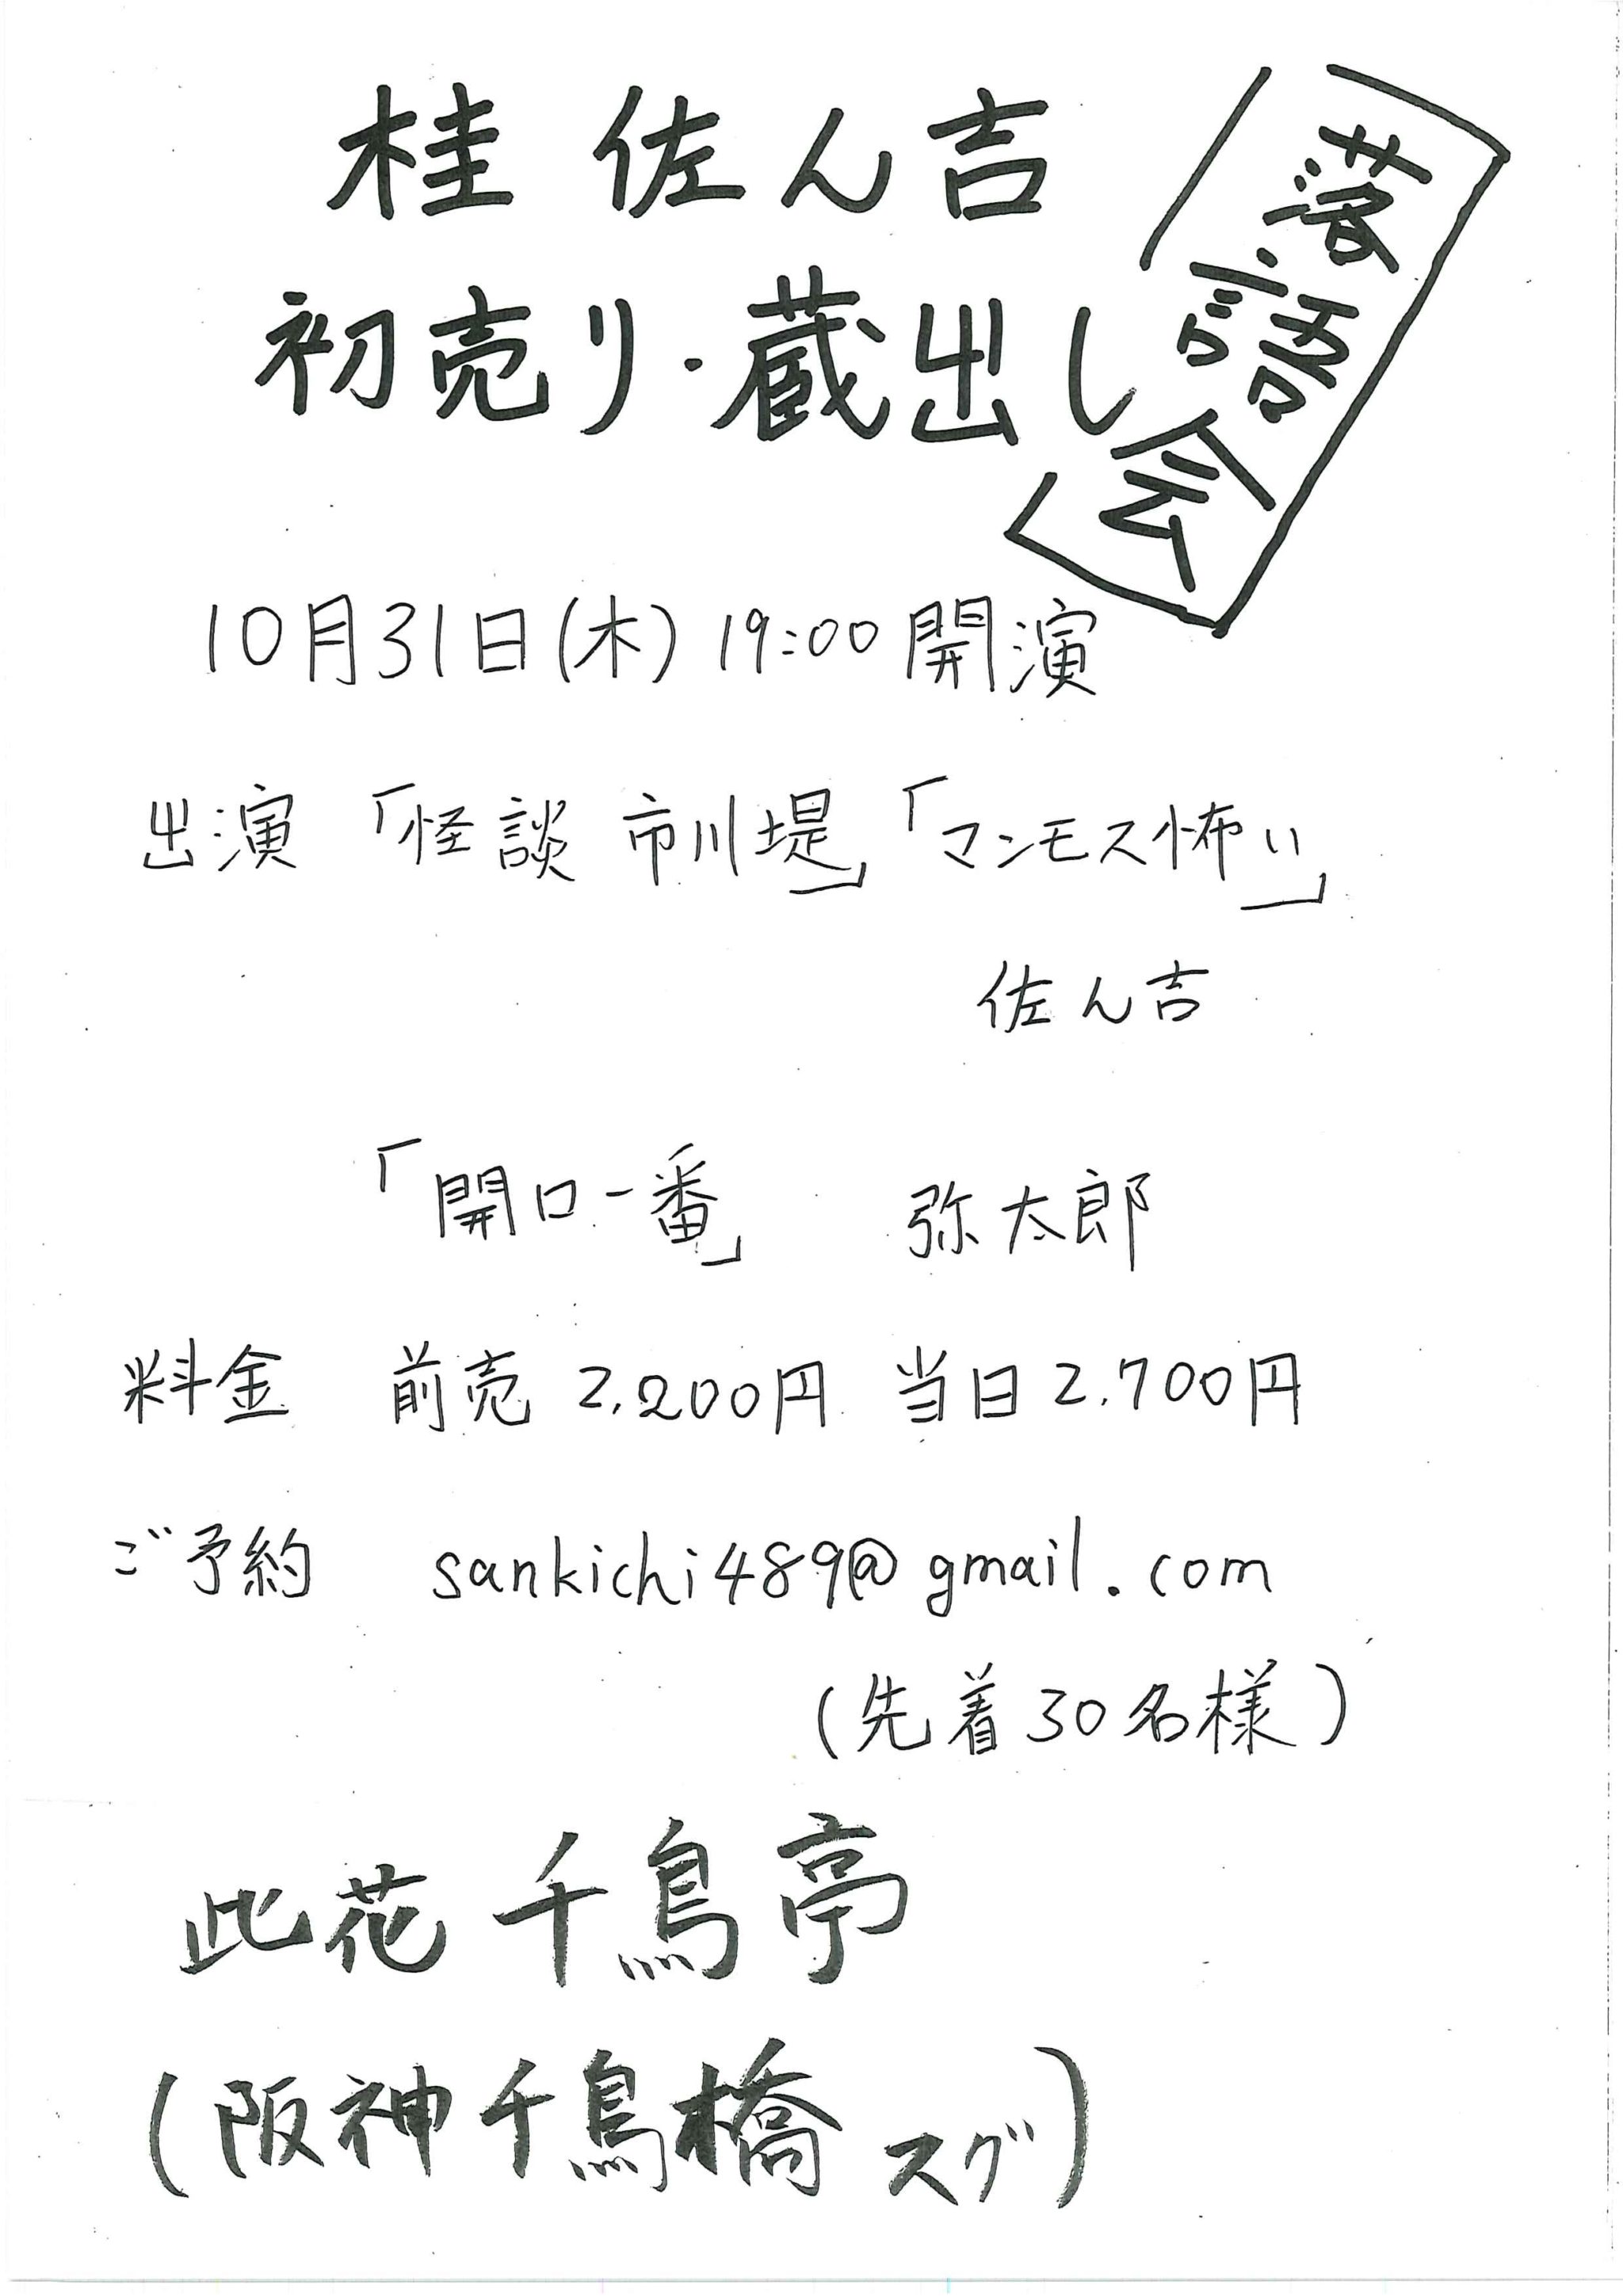 桂 佐ん吉
初売り・蔵出し
落語会
10月31日(木) 19:00 開演
出演 「怪談 市川堤」「マンモス怖い」
佐ん吉
「開口一番」 弥太郎
料金 前売 2,200円 当日 2,700円
ご予約 sankichi489@gmail.com
(先着30名様)
此花千鳥亭
(阪神千鳥橋 スグ)